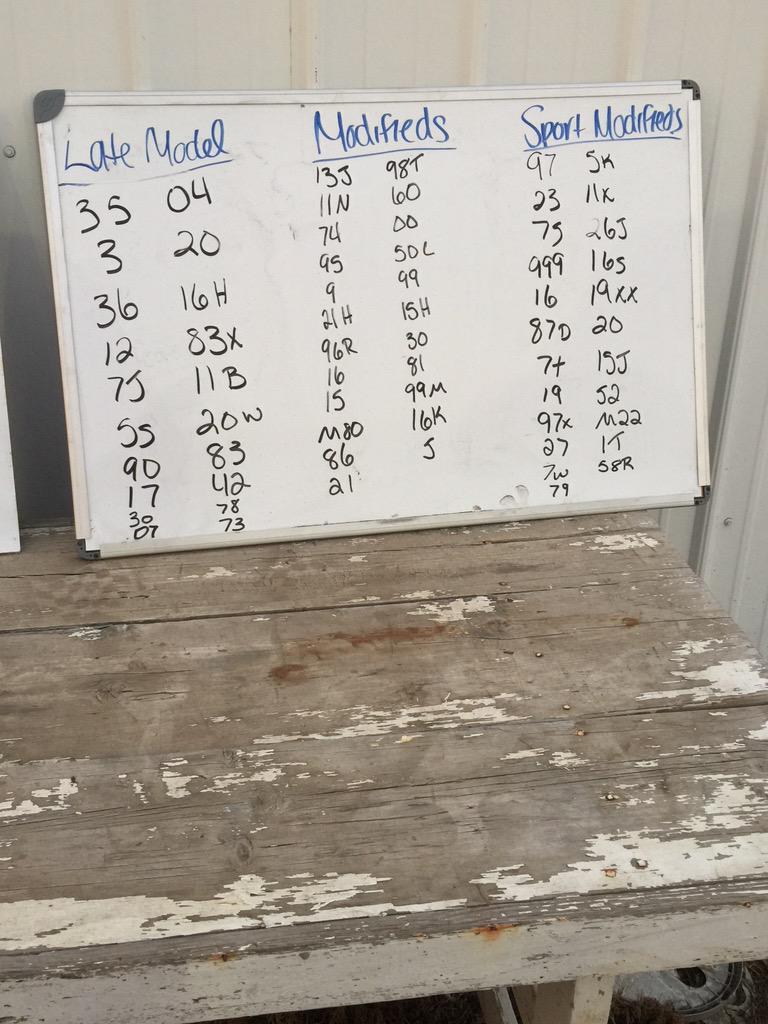 Late Model
35 04
3 20
36 16H
12 83X
7J 11B
5S 20W
90 83
17 42
30 78
07 73
Modifieds
13J 98T
11N 60
74 00
95 50L
9 99
21H 15H
96R 30
16 81
15 99M
M80 16K
86 J
21
Sport Modifieds
97 5K
23 11X
75 26J
999 16S
16 19XX
87D 20
7+ 15J
19 52
97X M22
27 1T
7W 58R
79